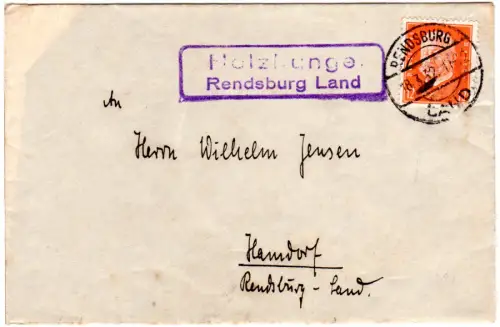 Holzbunge
Rendsburg Land
RENDSBURG
LAND
An
Herrn Wilhelm Jensen
Hamdorf
Rendsburg - Land.